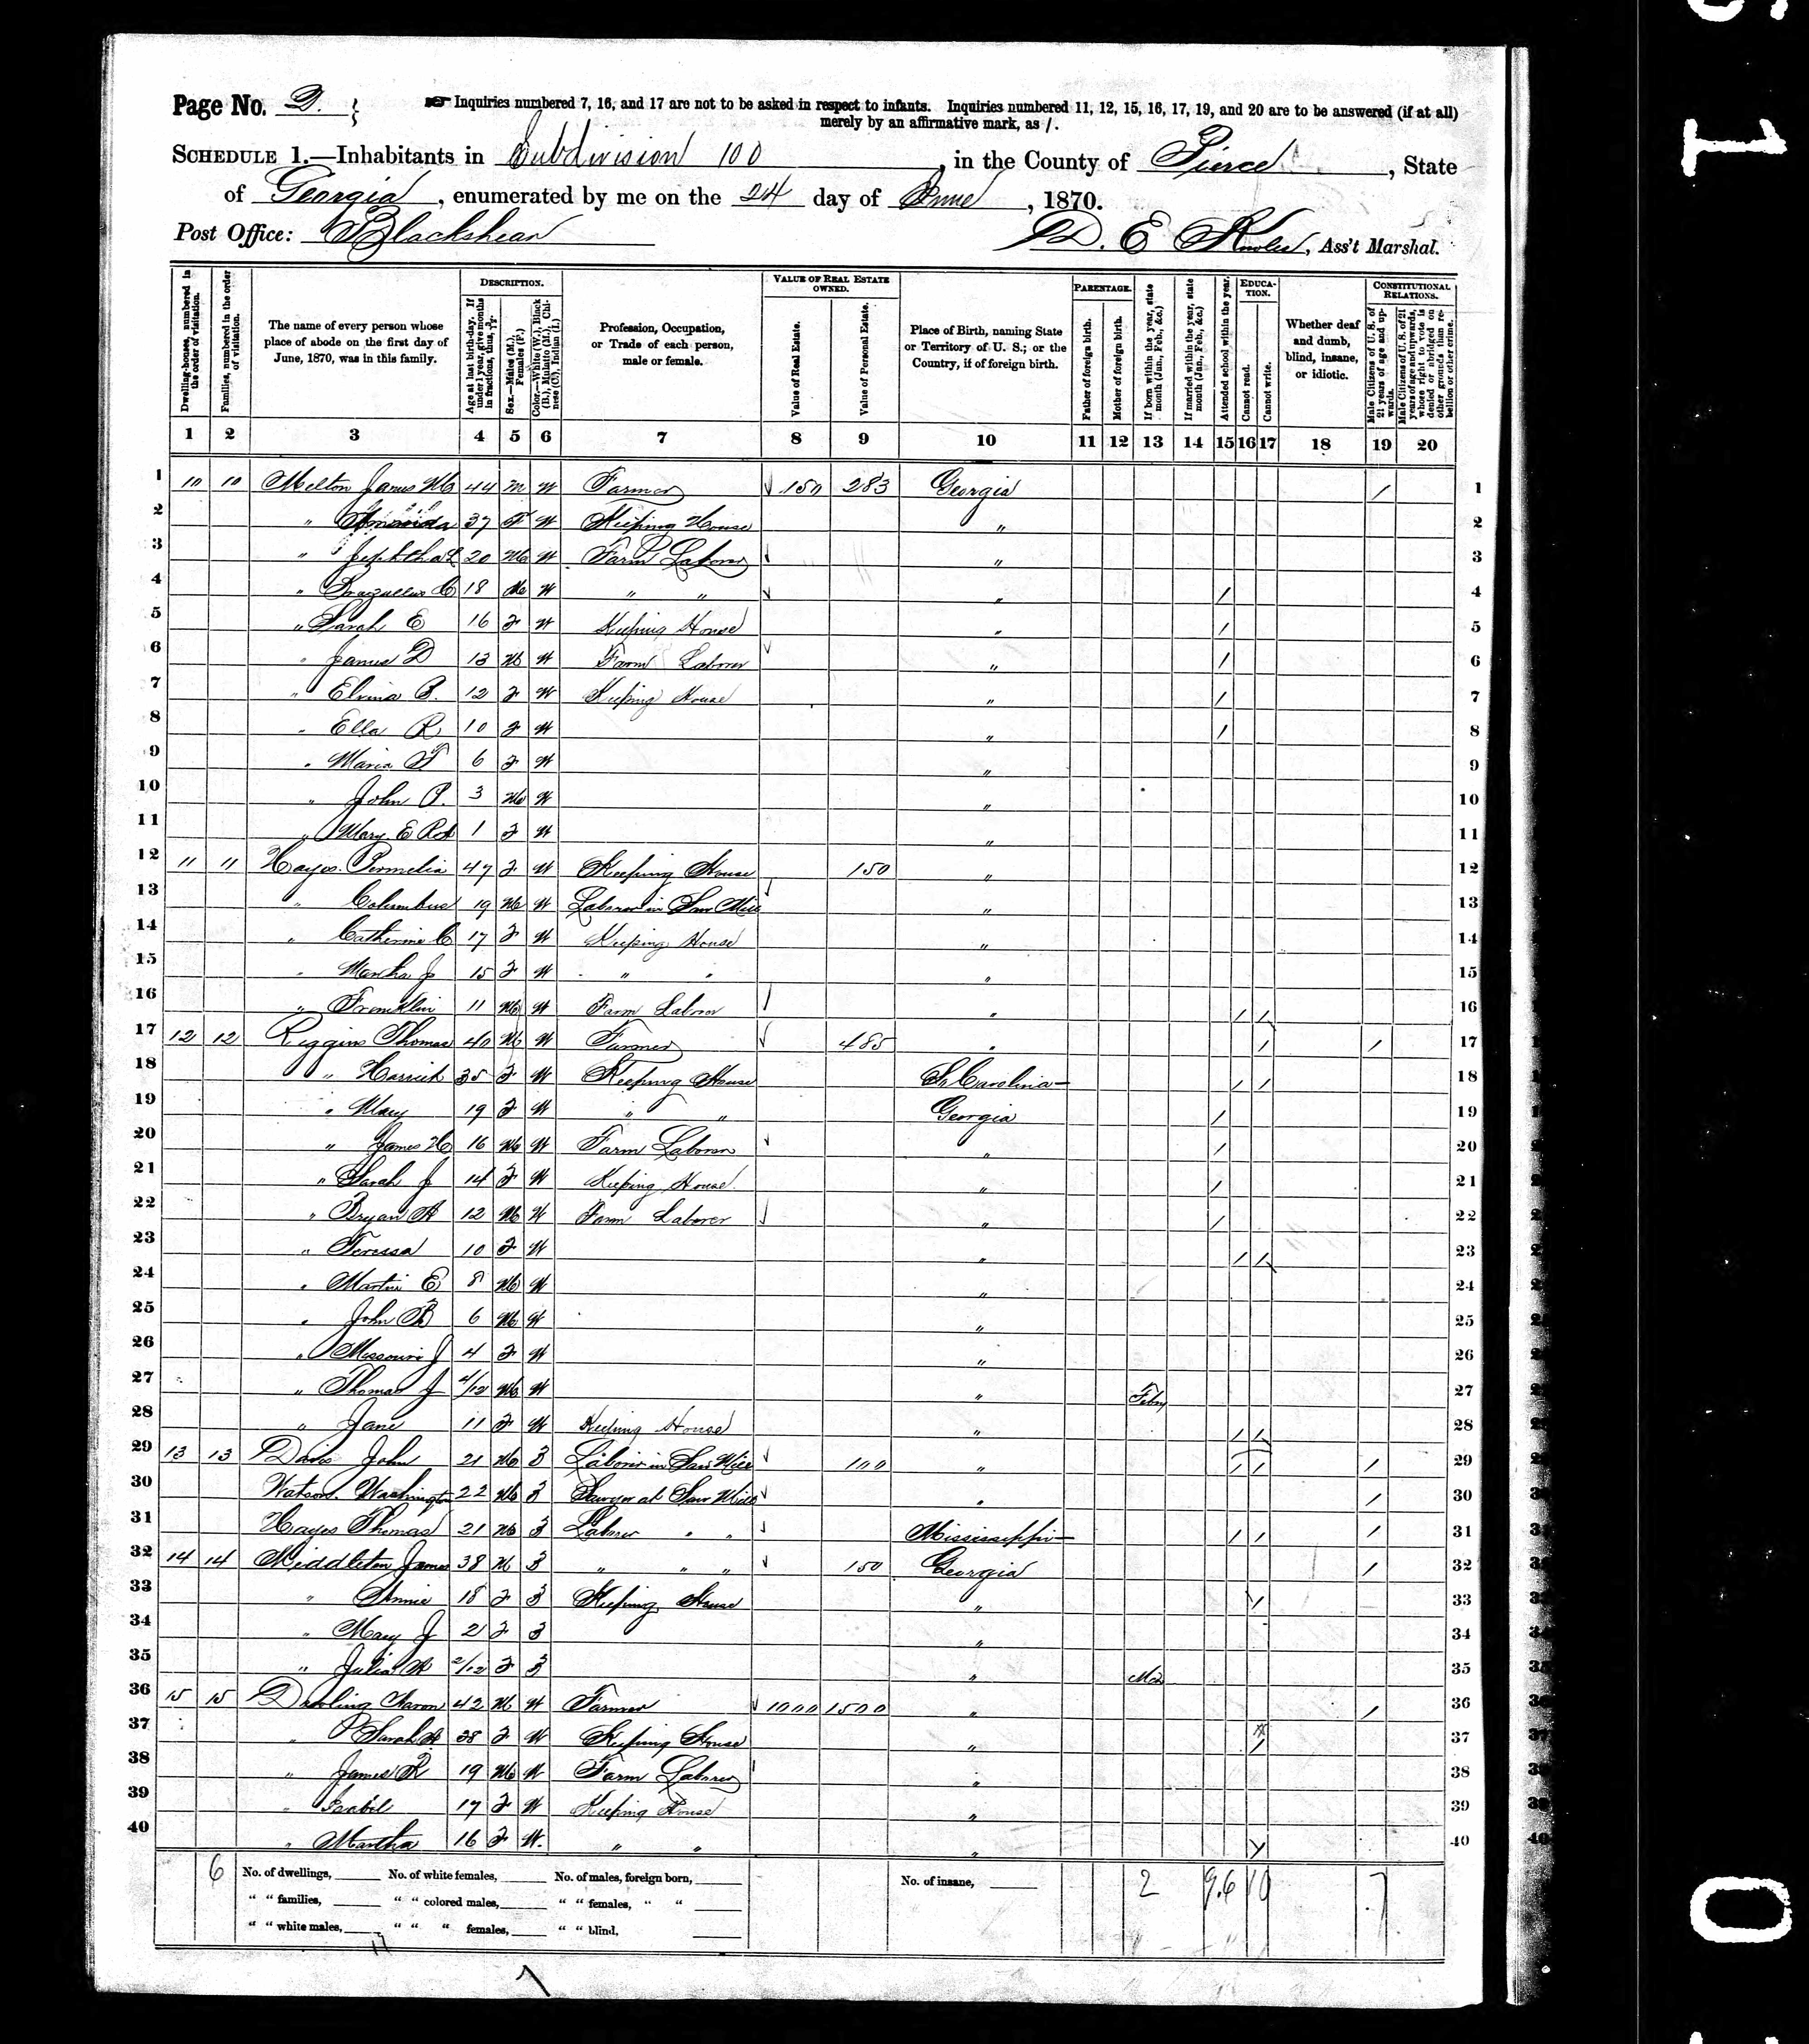 Page No. 2.
☞ Inquiries numbered 7, 16, and 17 are not to be asked in respect to infants. Inquiries numbered 11, 12, 15, 16, 17, 19, and 20 are to be answered (if at all)
merely by an affirmative mark, as /.
SCHEDULE 1.—Inhabitants in Subdivision 100, in the County of Pierce, State
of Georgia, enumerated by me on the 24 day of June, 1870.
Post Office: Blackshear
D. E. Knowles, Ass't Marshal.
Dwelling-houses, numbered in the order of visitation.
Families, numbered in the order of visitation.
The name of every person whose place of abode on the first day of June, 1870, was in this family.
DESCRIPTION.
Age at last birth-day. If under 1 year, give months in fractions, thus, 3/12.
Sex.—Males (M.), Females (F.)
Color.—White (W.), Black (B.), Mulatto (M.), Chinese (C.), Indian (I.)
Profession, Occupation, or Trade of each person, male or female.
VALUE OF REAL ESTATE OWNED.
Value of Real Estate.
Value of Personal Estate.
Place of Birth, naming State or Territory of U. S.; or the Country, if of foreign birth.
PARENTAGE.
Father of foreign birth.
Mother of foreign birth.
If born within the year, state month (Jan., Feb., &c.)
If married within the year, state month (Jan., Feb., &c.)
Attended school within the year.
EDUCATION.
Cannot read.
Cannot write.
Whether deaf and dumb, blind, insane, or idiotic.
CONSTITUTIONAL RELATIONS.
Male Citizens of U. S. of 21 years of age and upwards.
Male Citizens of U. S. of 21 years of age and upwards, whose right to vote is denied or abridged on other grounds than rebellion or other crime.
1 2 3 4 5 6 7 8 9 10 11 12 13 14 15 16 17 18 19 20
1 10 10 Melton James M 44 M W Farmer √ 150 283 Georgia / 1
2 " 37 F W Keeping House " 2
3 " Jephtha L 20 M W Farm Laborer √ " 3
4 " 18 M W " " √ " / 4
5 " Sarah E 16 F W Keeping House " / 5
6 " James D 13 M W Farm Laborer √ " / 6
7 " Elvina B. 12 F W Keeping House " / 7
8 " Ella R 10 F W " / 8
9 " Maria F 6 F W " 9
10 " John P. 3 M W " 10
11 " Mary E 1 F W " 11
12 11 11 Hayes Permelia 47 F W Keeping House 150 " 12
13 " Columbus 19 M W Laborer in Saw Mill √ " 13
14 " Catherine C 17 F W Keeping House " 14
15 " Martha J 15 F W " " " 15
16 " Franklin 11 M W Farm Laborer √ " / / 16
17 12 12 Riggins Thomas 40 M W Farmer √ 485 " / / 17
18 " Harriet 35 F W Keeping House S. Carolina / / 18
19 " Mary 19 F W " " Georgia / 19
20 " James H 16 M W Farm Laborer √ " / 20
21 " Sarah J 14 F W Keeping House " / 21
22 " Bryan A 12 M W Farm Laborer √ " / 22
23 " Teressa 10 F W " / / 23
24 " Martin E 8 M W " 24
25 " John B 6 M W " 25
26 " Missouri J 4 F W " 26
27 " Thomas J 4/12 M W " Feby 27
28 " Jane 11 F W Keeping House " / / 28
29 13 13 Davis John 21 M B Laborer in Saw Mill √ 100 " / / / 29
30 Watson Washington 22 M B Sawyer at Saw Mill √ " / 30
31 Hayes Thomas 21 M B Laborer " " √ Mississippi / / / 31
32 14 14 Middleton James 38 M B " " " √ 150 Georgia / 32
33 " Annie 18 F B Keeping House " / 33
34 " Mary J 2 F B " 34
35 " Julia A 2/12 F B " Mch 35
36 15 15 Dowling Aaron 42 M W Farmer √ 1000 1500 " / 36
37 " Sarah A. 38 F W Keeping House " / 37
38 " James R 19 M W Farm Laborer " 38
39 " Isabel 17 F W Keeping House " 39
40 " Martha 16 F W. " " " / 40
6 No. of dwellings, No. of white females, No. of males, foreign born, No. of insane, 2 9.6 10 7
" " families, " " colored males, " " females, " "
" " white males, " " " females, " " blind,